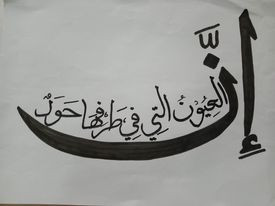 إِنَّ العُيُوْنَ التِي فِي طَرْفِهَا حَوَرٌ